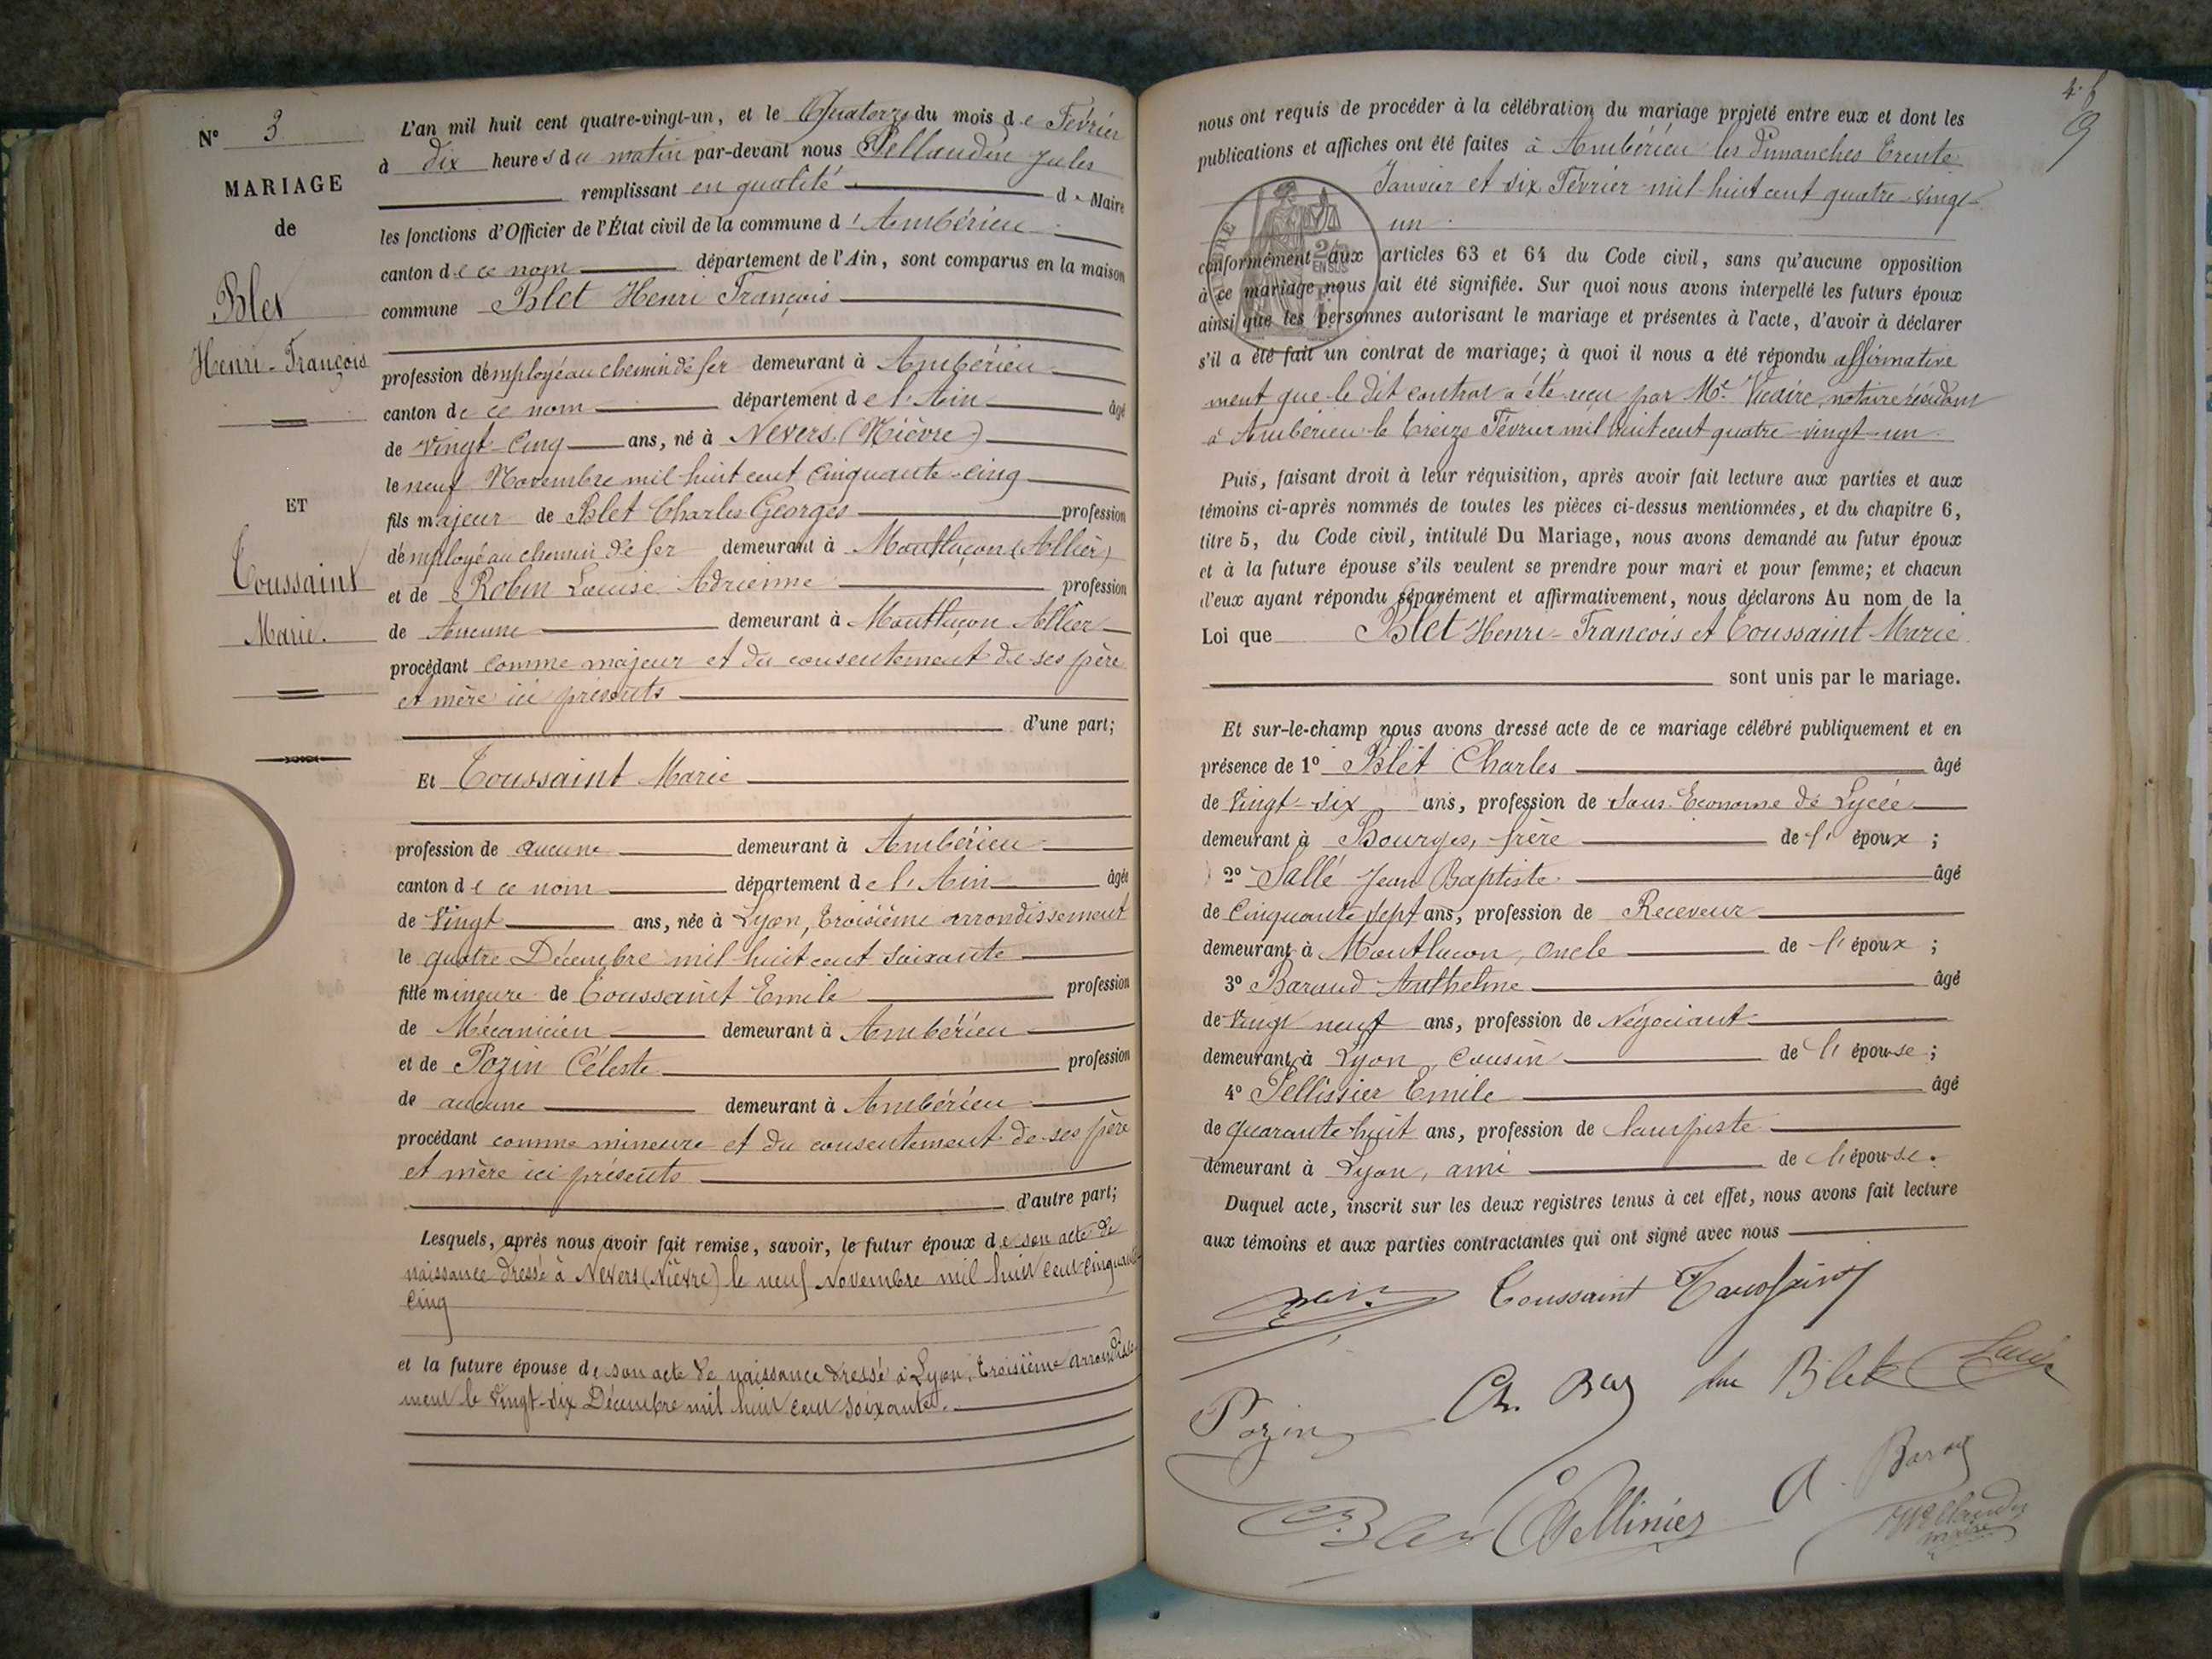 N° 3
MARIAGE
de
Blet
Henri-François
ET
Toussaint
Marie.
L'an mil huit cent quatre-vingt-un, et le Quatorze du mois de Février
à dix heures du matin par-devant nous Pellaudin Jules
remplissant en qualité de Maire
les fonctions d'Officier de l'État civil de la commune d'Ambérieu
canton de ce nom département de l'Ain, sont comparus en la maison
commune Blet Henri François
profession d'employé au chemin de fer demeurant à Ambérieu
canton de ce nom département de l'Ain âgé
de vingt-cinq ans, né à Nevers (Nièvre)
le neuf Novembre mil huit cent cinquante-cinq
fils majeur de Blet Charles Georges profession
d'employé au chemin de fer demeurant à Montluçon (Allier)
et de Robin Louise Adrienne profession
de Aucune demeurant à Montluçon Allier
procédant comme majeur et du consentement de ses père
et mère ici présents
d'une part;
Et Toussaint Marie
profession de aucune demeurant à Ambérieu
canton de ce nom département de l'Ain âgée
de vingt ans, née à Lyon, troisième arrondissement
le quatre Décembre mil huit cent soixante
fille mineure de Toussaint Emile profession
de Mécanicien demeurant à Ambérieu
et de Pozin Céleste profession
de aucune demeurant à Ambérieu
procédant comme mineure et du consentement de ses père
et mère ici présents
d'autre part;
Lesquels, après nous avoir fait remise, savoir, le futur époux de son acte de
naissance dressé à Nevers (Nièvre) le neuf Novembre mil huit cent cinquante-
cinq
et la future épouse de son acte de naissance dressé à Lyon, troisième arrondisse-
ment le vingt-six Décembre mil huit cent soixante.
nous ont requis de procéder à la célébration du mariage projeté entre eux et dont les
publications et affiches ont été faites à Ambérieu les dimanches trente
Janvier et six Février mil huit cent quatre-vingt-
un
2/10
EN SUS
conformément aux articles 63 et 64 du Code civil, sans qu'aucune opposition
à ce mariage nous ait été signifiée. Sur quoi nous avons interpellé les futurs époux
ainsi que les personnes autorisant le mariage et présentes à l'acte, d'avoir à déclarer
s'il a été fait un contrat de mariage; à quoi il nous a été répondu affirmative
ment que le dit contrat a été reçu par Me. Vicaire, notaire résidant
à Ambérieu le treize Février mil huit cent quatre-vingt-un
Puis, faisant droit à leur réquisition, après avoir fait lecture aux parties et aux
témoins ci-après nommés de toutes les pièces ci-dessus mentionnées, et du chapitre 6,
titre 5, du Code civil, intitulé Du Mariage, nous avons demandé au futur époux
et à la future épouse s'ils veulent se prendre pour mari et pour femme; et chacun
d'eux ayant répondu séparément et affirmativement, nous déclarons Au nom de la
Loi que Blet Henri-François et Toussaint Marie
sont unis par le mariage.
Et sur-le-champ nous avons dressé acte de ce mariage célébré publiquement et en
présence de 1° Blet Charles âgé
de vingt-six ans, profession de Sous-Econome de Lycée
demeurant à Bourges, frère de l'époux;
2° Sallé Jean Baptiste âgé
de cinquante sept ans, profession de Receveur
demeurant à Montluçon, oncle de l'époux;
3° Baraud Anthelme âgé
de vingt neuf ans, profession de Négociant
demeurant à Lyon, cousin de l'épouse;
4° Pellissier Emile âgé
de quarante huit ans, profession de lampiste
demeurant à Lyon, ami de l'épouse.
Duquel acte, inscrit sur les deux registres tenus à cet effet, nous avons fait lecture
aux témoins et aux parties contractantes qui ont signé avec nous
Toussaint Toussaint
Pozin Ch. Blet Blet
Pellissier A. Baraud
Pellaudin
maire